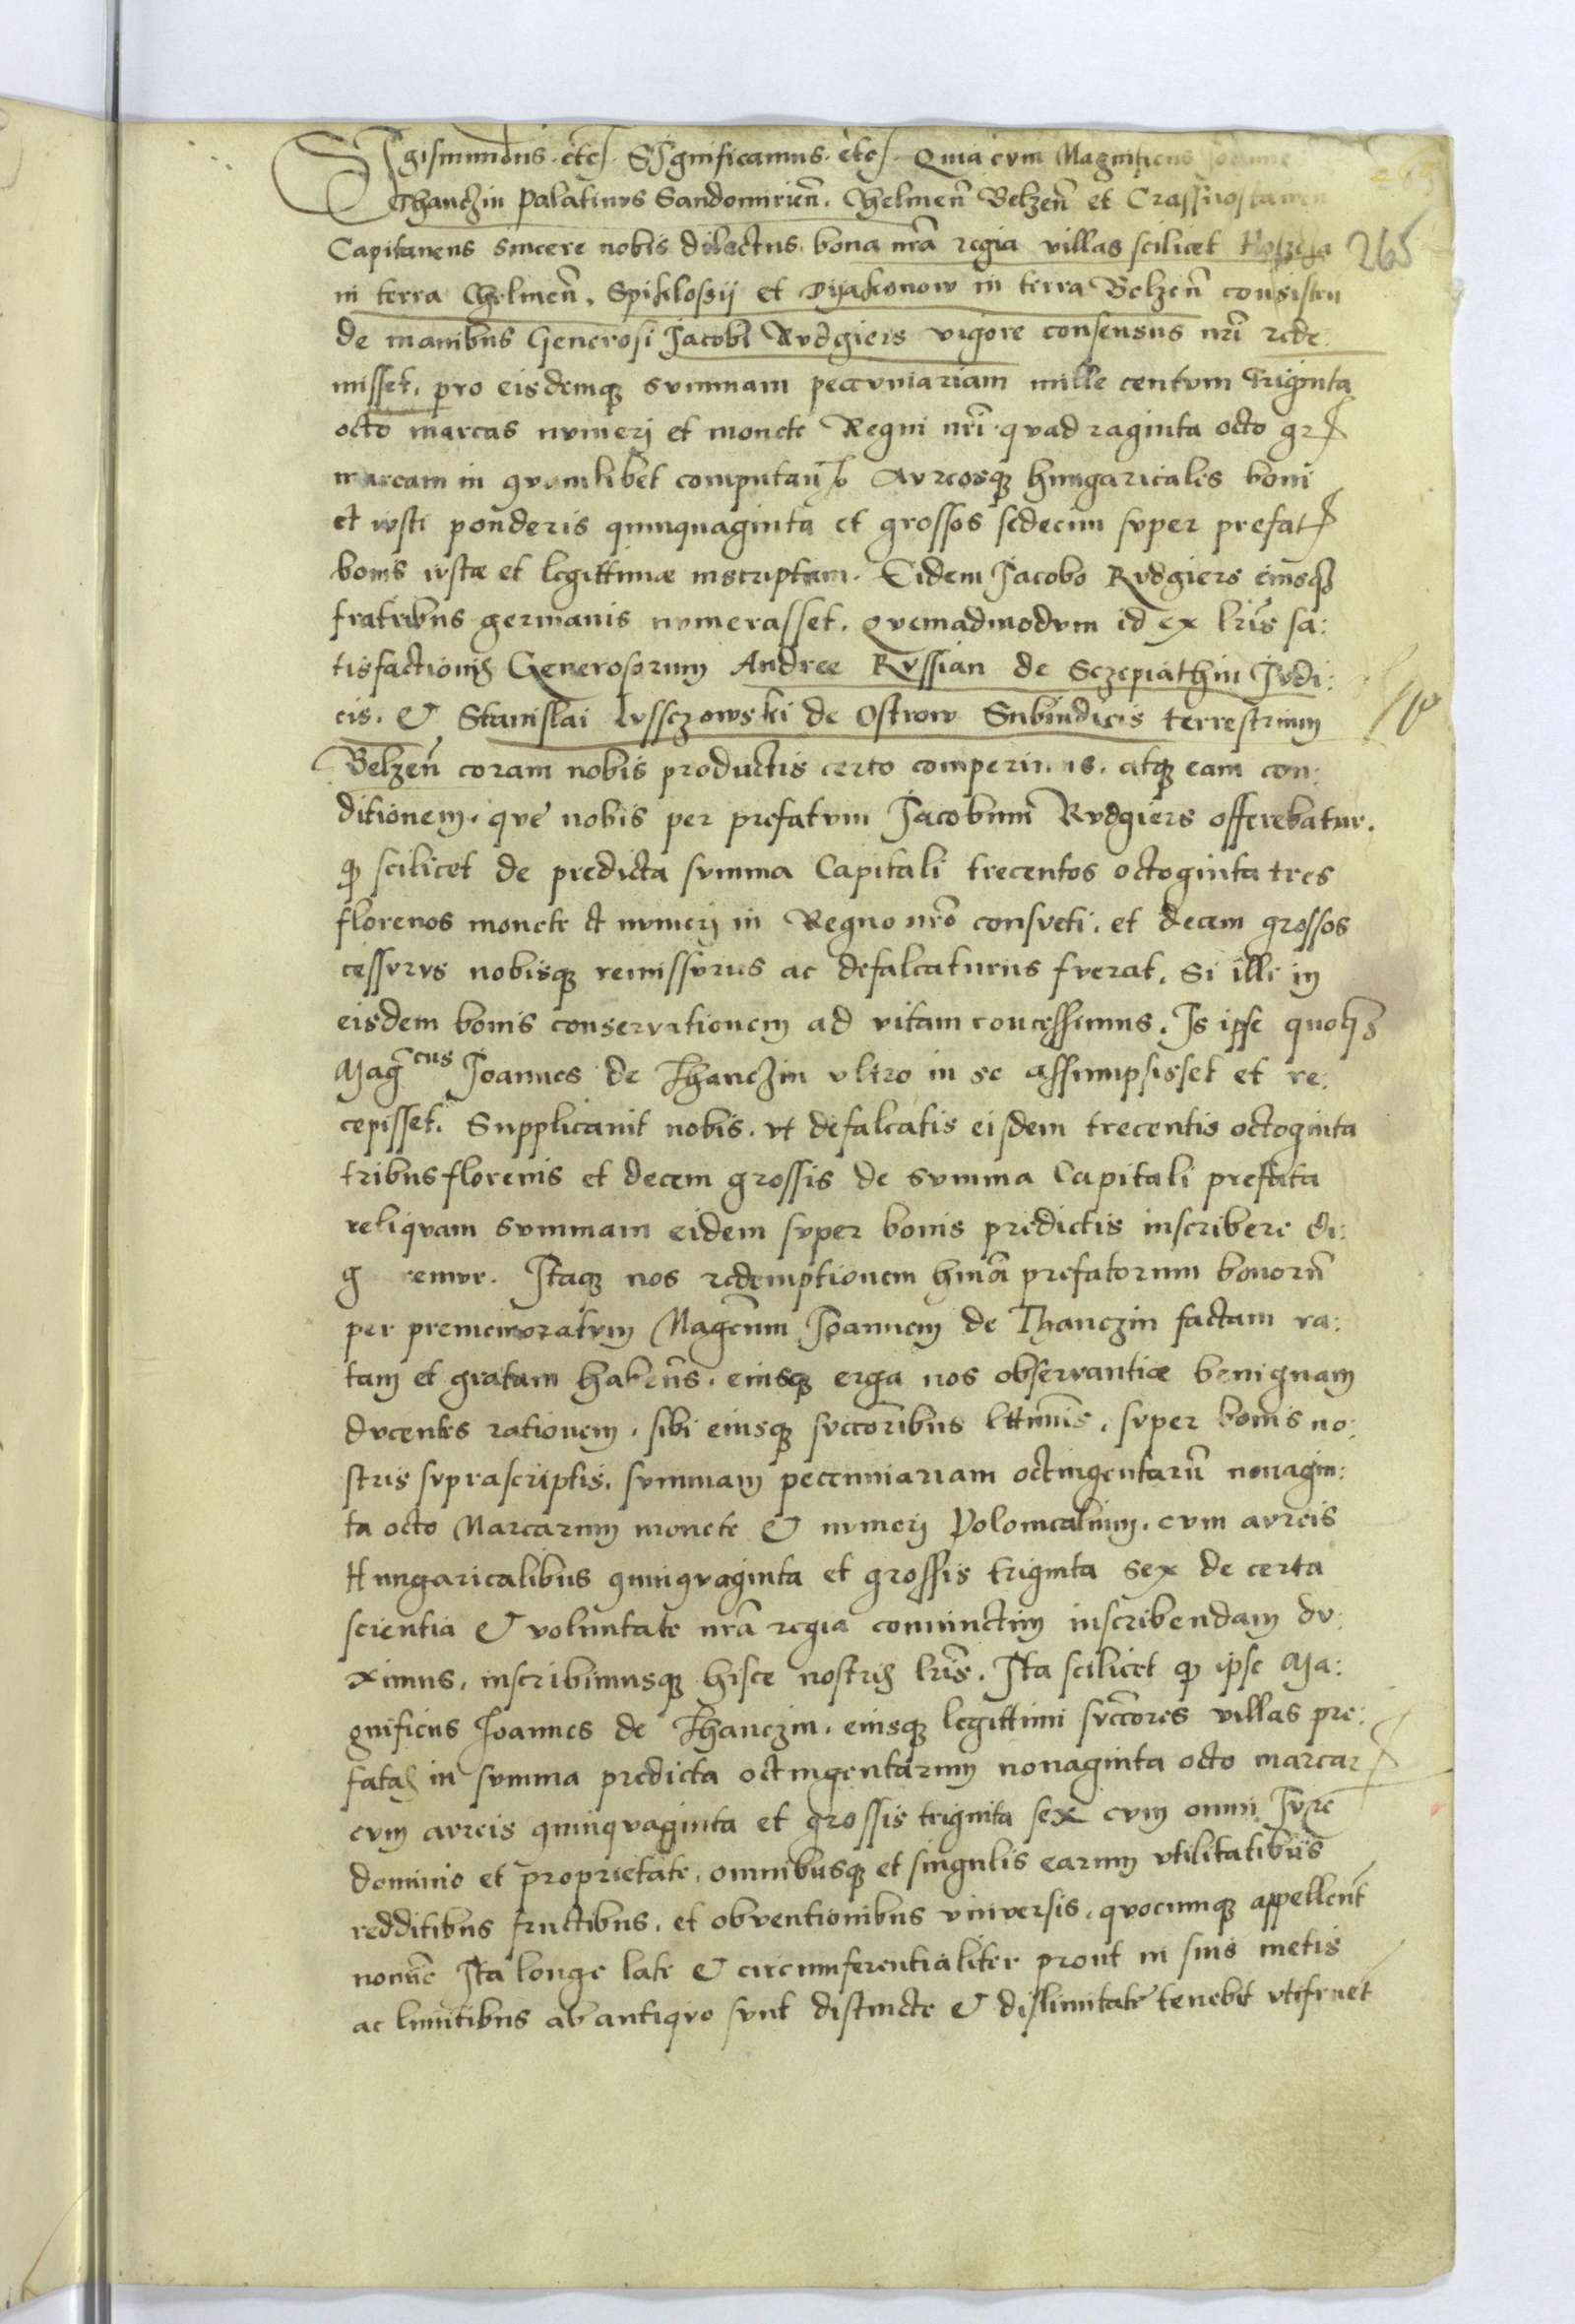 Sigismundus etc. Significamus etc. Quia cum Magnificus Joanne
Thanczin Palatinus Sandomirien̄. Chelmen̄ Belzen̄ et Crassnostamen
Capitaneus sincere nobis dilectus. bona nr̄a regia villas scilicet
265
in terra Chelmen̄. Spiklossij et Dyakonow in terra Belzen̄ consisten
de manibus Generosi Jacobi Rvdgiers vigore consensus nr̄i rede:
misset. pro eisdemq; summam peccuniariam mille centum triginta
octo marcas numerj et monete Regni nr̄i quadraginta octo gr
marcam in quamlibet computan̄do Aureosq; hungaricales boni
et iusti ponderis quinquaginta et grossos sedecim super prefat
bonis iustæ et legittimæ inscriptam. Eidem Jacobo Rvdgiers eiusq;
fratribus germanis numerasset. Quemadmodum id ex lr̄is sa:
tisfactionis Generosorum Andree Rvssian de Sczepiathin Judi:
cis. & Stanislai Lyssczowski de Ostrow Subiudicis terrestrium
Belzen̄ coram nobis productis certo comperimus. atq; eam con:
ditionem. que nobis per prefatum Jacobum Rvdgiers offerebatur.
q scilicet de predicta summa Capitali trecentos octoginta tres
florenos monete et numerj in Regno nr̄o consueti. et decem grossos
cessurus nobisq; remissurus ac defalcaturus fuerat. Si illi in
eisdem bonis conservationem ad vitam concessemus. Is ipse quoq;
Mag̅cus Joannes de Thanczin ultro in se assumpsisset et re:
cepisset. Supplicauit nobis. vt defalcatis eisdem trecentis octoginta
tribus florenis et decem grossis de summa Capitali prefata
reliquam summam eidem super bonis predictis inscribere di:
g remur. Itaq; nos redemptionem hm̄oi prefatorum bonorum̄
per prememoratum Mag̅cum Joannem de Thanczin factam ra:
tam et gratam haben̄s. eiusq; erga nos observantiæ benignam
ducentes rationem. sibi eiusq; succ̄oribus ltt̄imis. super bonis no:
stris suprascriptis. summam pecuniariam octingentarum̄ nonagin:
ta octo Marcarum monete & numerj Polonicalium. cum aureis
Hungaricalibus quinquaginta et grossis triginta sex de certa
scientia & voluntate nr̄a regia coniunctim inscribendam du:
ximus. inscribimusq; hisce nostris lr̄is. Ita scilicet q ipse Ma:
gnificus Joannes de Thanczin. eiusq; legittimi succ̄ores villas pre:
fatas in summa predicta octingentarum nonaginta octo marcar
cum aureis quinquaginta et grossis triginta sex cum omni Jure
dominio et proprietate. omnibusq; et singulis earum vtilitatibus
redditibus fructibus. et obventionibus vniversis. quocumq; appellen̄t
nomi̅e Ita longe late & circumferentialiter prout in suis metis
ac limitibus ab antiquo sunt distincte & dislimitate tenebit vtifruet